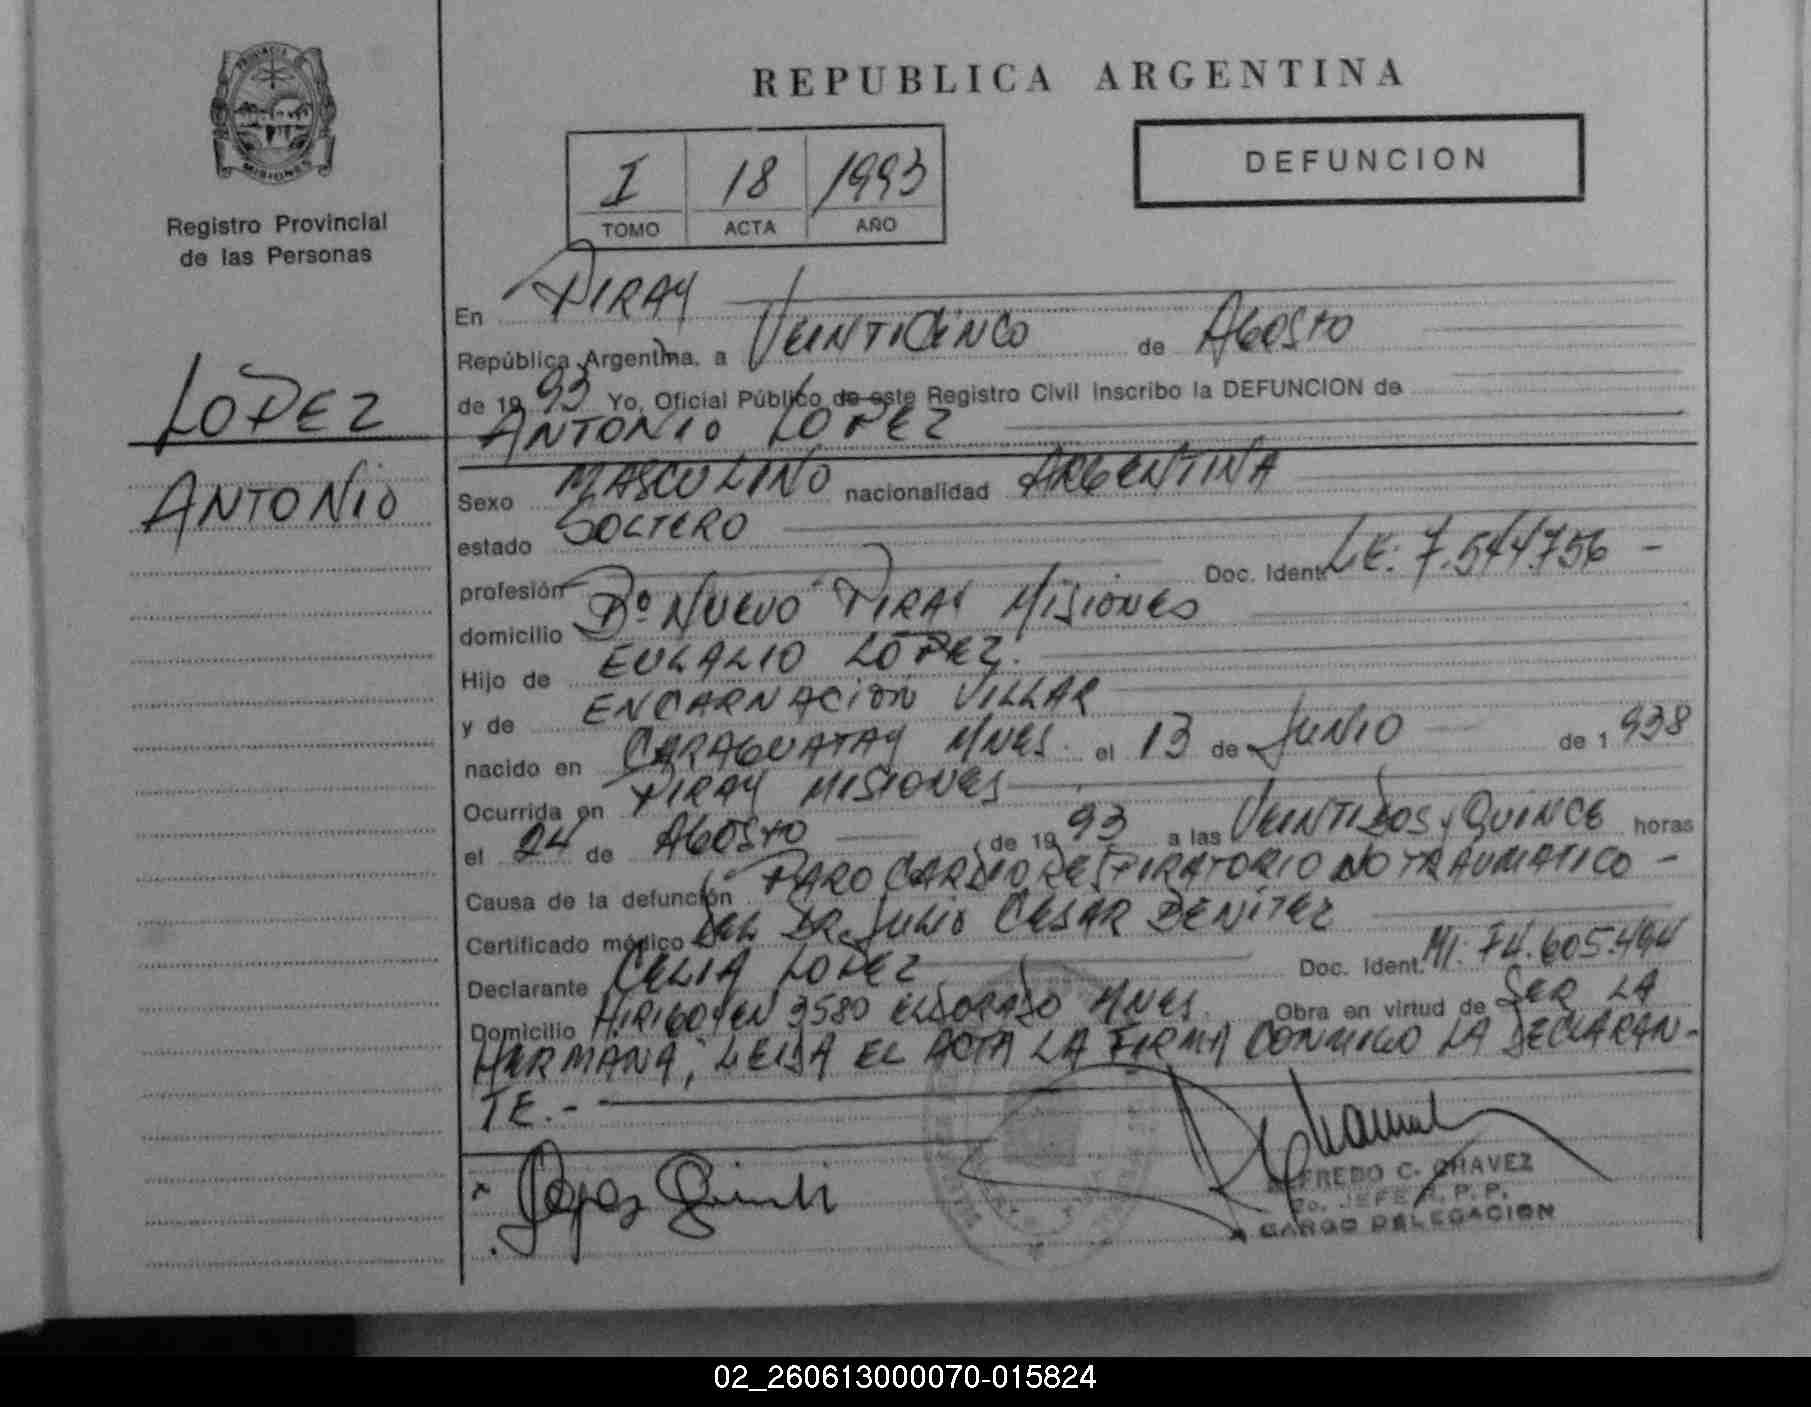 PROVINCIA
MISIONES
Registro Provincial
de las Personas
LOPEZ
ANTONIO
REPUBLICA ARGENTINA
I 18 1993
TOMO ACTA AÑO
DEFUNCION
En PIRAY
República Argentina, a VEINTICINCO de AGOSTO
de 19 93 Yo, Oficial Público de este Registro Civil inscribo la DEFUNCION de
ANTONIO LOPEZ
Sexo MASCULINO nacionalidad ARGENTINA
estado SOLTERO
profesión Doc. Ident. L.E: 7.544.756 -
domicilio Bº NUEVO PIRAY MISIONES
Hijo de EULALIO LOPEZ.
y de ENCARNACION VILLAR
nacido en CARAGUATAY MNES. el 13 de JUNIO de 1 938
Ocurrida en PIRAY MISIONES
el 24 de AGOSTO de 19 93 a las VEINTIDOS y QUINCE horas
Causa de la defunción PARO CARDIO RESPIRATORIO NO TRAUMATICO -
Certificado médico DEL DR. JULIO CESAR BENITEZ
Declarante CELIA LOPEZ Doc. Ident. MI. F4.605.494
Domicilio HIRIGOYEN 3580 ELDORADO MNES. Obra en virtud de SER LA
HERMANA, LEIDA EL ACTA LA FIRMA CONMIGO LA DECLARAN-
TE.-
Lopez
ALFREDO C. CHAVEZ
2o. JEFE R. P. P.
CARGO DELEGACION
02_260613000070-015824